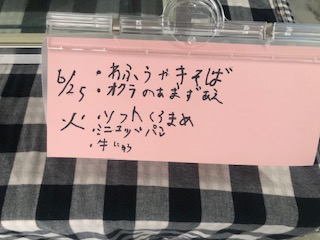 6/25 ・わふうやきそば
・オクラのあまずあえ
火 ・ソフトくろまめ
・ミニコッペパン
・牛にゅう